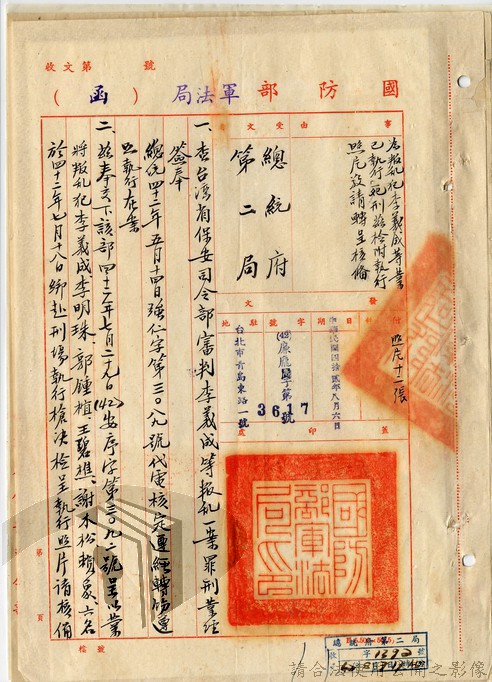 收文第 號
國防部軍法局（函）
事由
為叛乱犯李義成等業
已执行死刑檢附执行
照片致請轉呈核備
照片十二張
受文者
總統府
第二局
發文
附件
日期
字號
駐地
中華民國四拾貳年八月六日
(42)
號 3617
台北市青島東路一號
蓋印
國防部軍法局印
一、查台湾省保安司令部審判李義成等叛乱一案罪刑業經
簽奉
總統四十二年五月十四日強仁字第三〇八九號代電核定遵經轉飭遵
照执行在案
二、茲奉天下該部四十二年七月二十九日(42)安序字第三〇九二號呈以業
將叛乱犯李義成李明珠、郭鍾植、王碧樵、謝木松賴象六名
於四十二年七月十八日綁赴刑場执行槍决檢呈执行照片請核備
第 頁
檔號
總統府第二局
收 字 號
請合法使用公開之影像